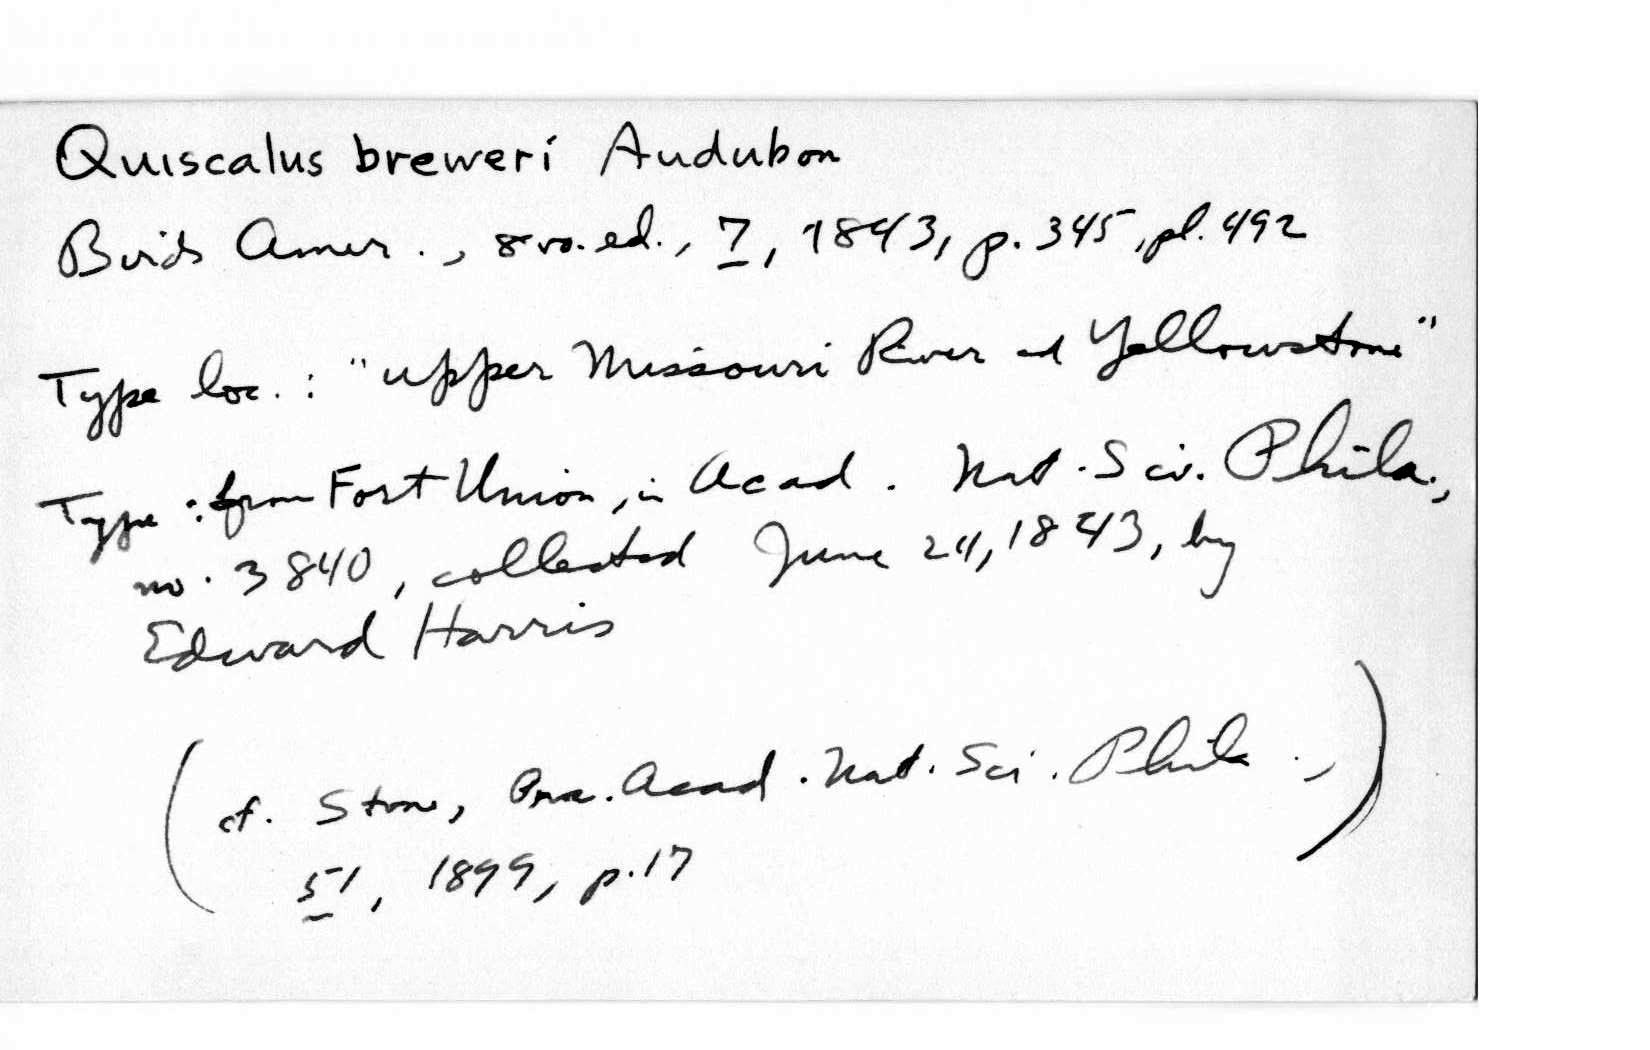 Quiscalus breweri Audubon
Birds Amer., 8vo. ed., 7, 1843, p. 345, pl. 492
Type loc.: "upper Missouri River and Yellowstone"
Type: from Fort Union, in Acad. Nat. Sci. Phila.,
no. 3840, collected June 24, 1843, by
Edward Harris
(cf. Stone, Proc. Acad. Nat. Sci. Phila.,
51, 1899, p. 17)